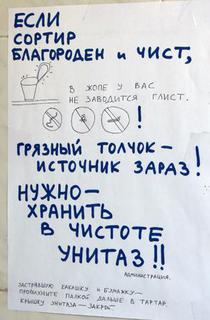 ЕСЛИ
СОРТИР
БЛАГОРОДЕН и ЧИСТ,
В ЖОПЕ У ВАС
НЕ ЗАВОДИТСЯ ГЛИСТ.
!
ГРЯЗНЫЙ ТОЛЧОК —
ИСТОЧНИК ЗАРАЗ!
НУЖНО —
ХРАНИТЬ
В ЧИСТОТЕ
УНИТАЗ!!
АДМИНИСТРАЦИЯ.
ЗАСТРЯВШУЮ КАКАШКУ И БУМАЖКУ —
ПРОПИХНИТЕ ПАЛКОЙ ДАЛЬШЕ В ТАРТАР.
КРЫШКУ УНИТАЗА — ЗАКРОЙ